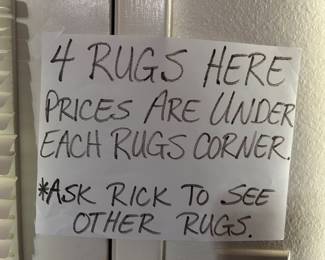 4 RUGS HERE
PRICES ARE UNDER
EACH RUGS CORNER.
*ASK RICK TO SEE
OTHER RUGS.